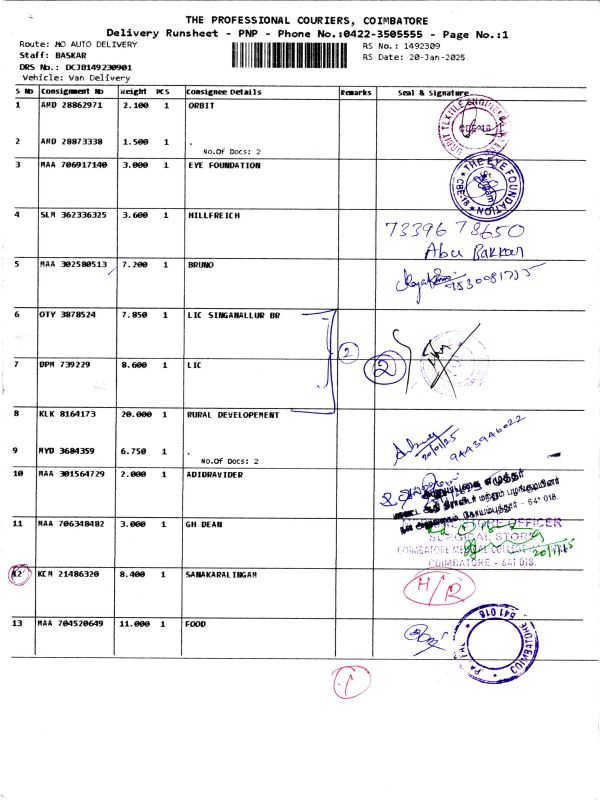 THE PROFESSIONAL COURIERS, COIMBATORE
Delivery Runsheet - PNP - Phone No.:0422-3505555 - Page No.:1
Route: MO AUTO DELIVERY
RS No.: 1492309
Staff: BASKAR
RS Date: 20-Jan-2025
DRS No.: DCJB149230901
Vehicle: Van Delivery
S No Consignment No Weight PCS Consignee Details Remarks Seal & Signature
1 AMD 28862971 2.100 1 ORBIT
2 AMD 28873338 1.500 1 .
No.Of Docs: 2
3 MAA 706917140 3.000 1 EYE FOUNDATION
THE EYE FOUNDATION
4 SLM 362336325 3.600 1 HILLFREICH
73396 78650
Abu Bakkar
5 MAA 302580513 7.200 1 BRUNO
6 OTY 3878524 7.850 1 LIC SINGANALLUR BR
2 2
7 DPM 739229 8.600 1 LIC
8 KLK 8164173 20.000 1 RURAL DEVELOPEMENT
20/01/25
9443946022
9 MYD 3684359 6.750 1 .
No.Of Docs: 2
10 MAA 301564729 2.000 1 ADIDRAVIDER
11 MAA 706348482 3.000 1 GH DEAN
STORE OFFICER
SURGICAL STORE
COIMBATORE MEDICAL COLLEGE
COIMBATORE - 641 018.
20/1/25
12 KCM 21486320 8.400 1 SANAKARALINGAM
H/R
13 MAA 704520649 11.000 1 FOOD
COIMBATORE 641 018
1